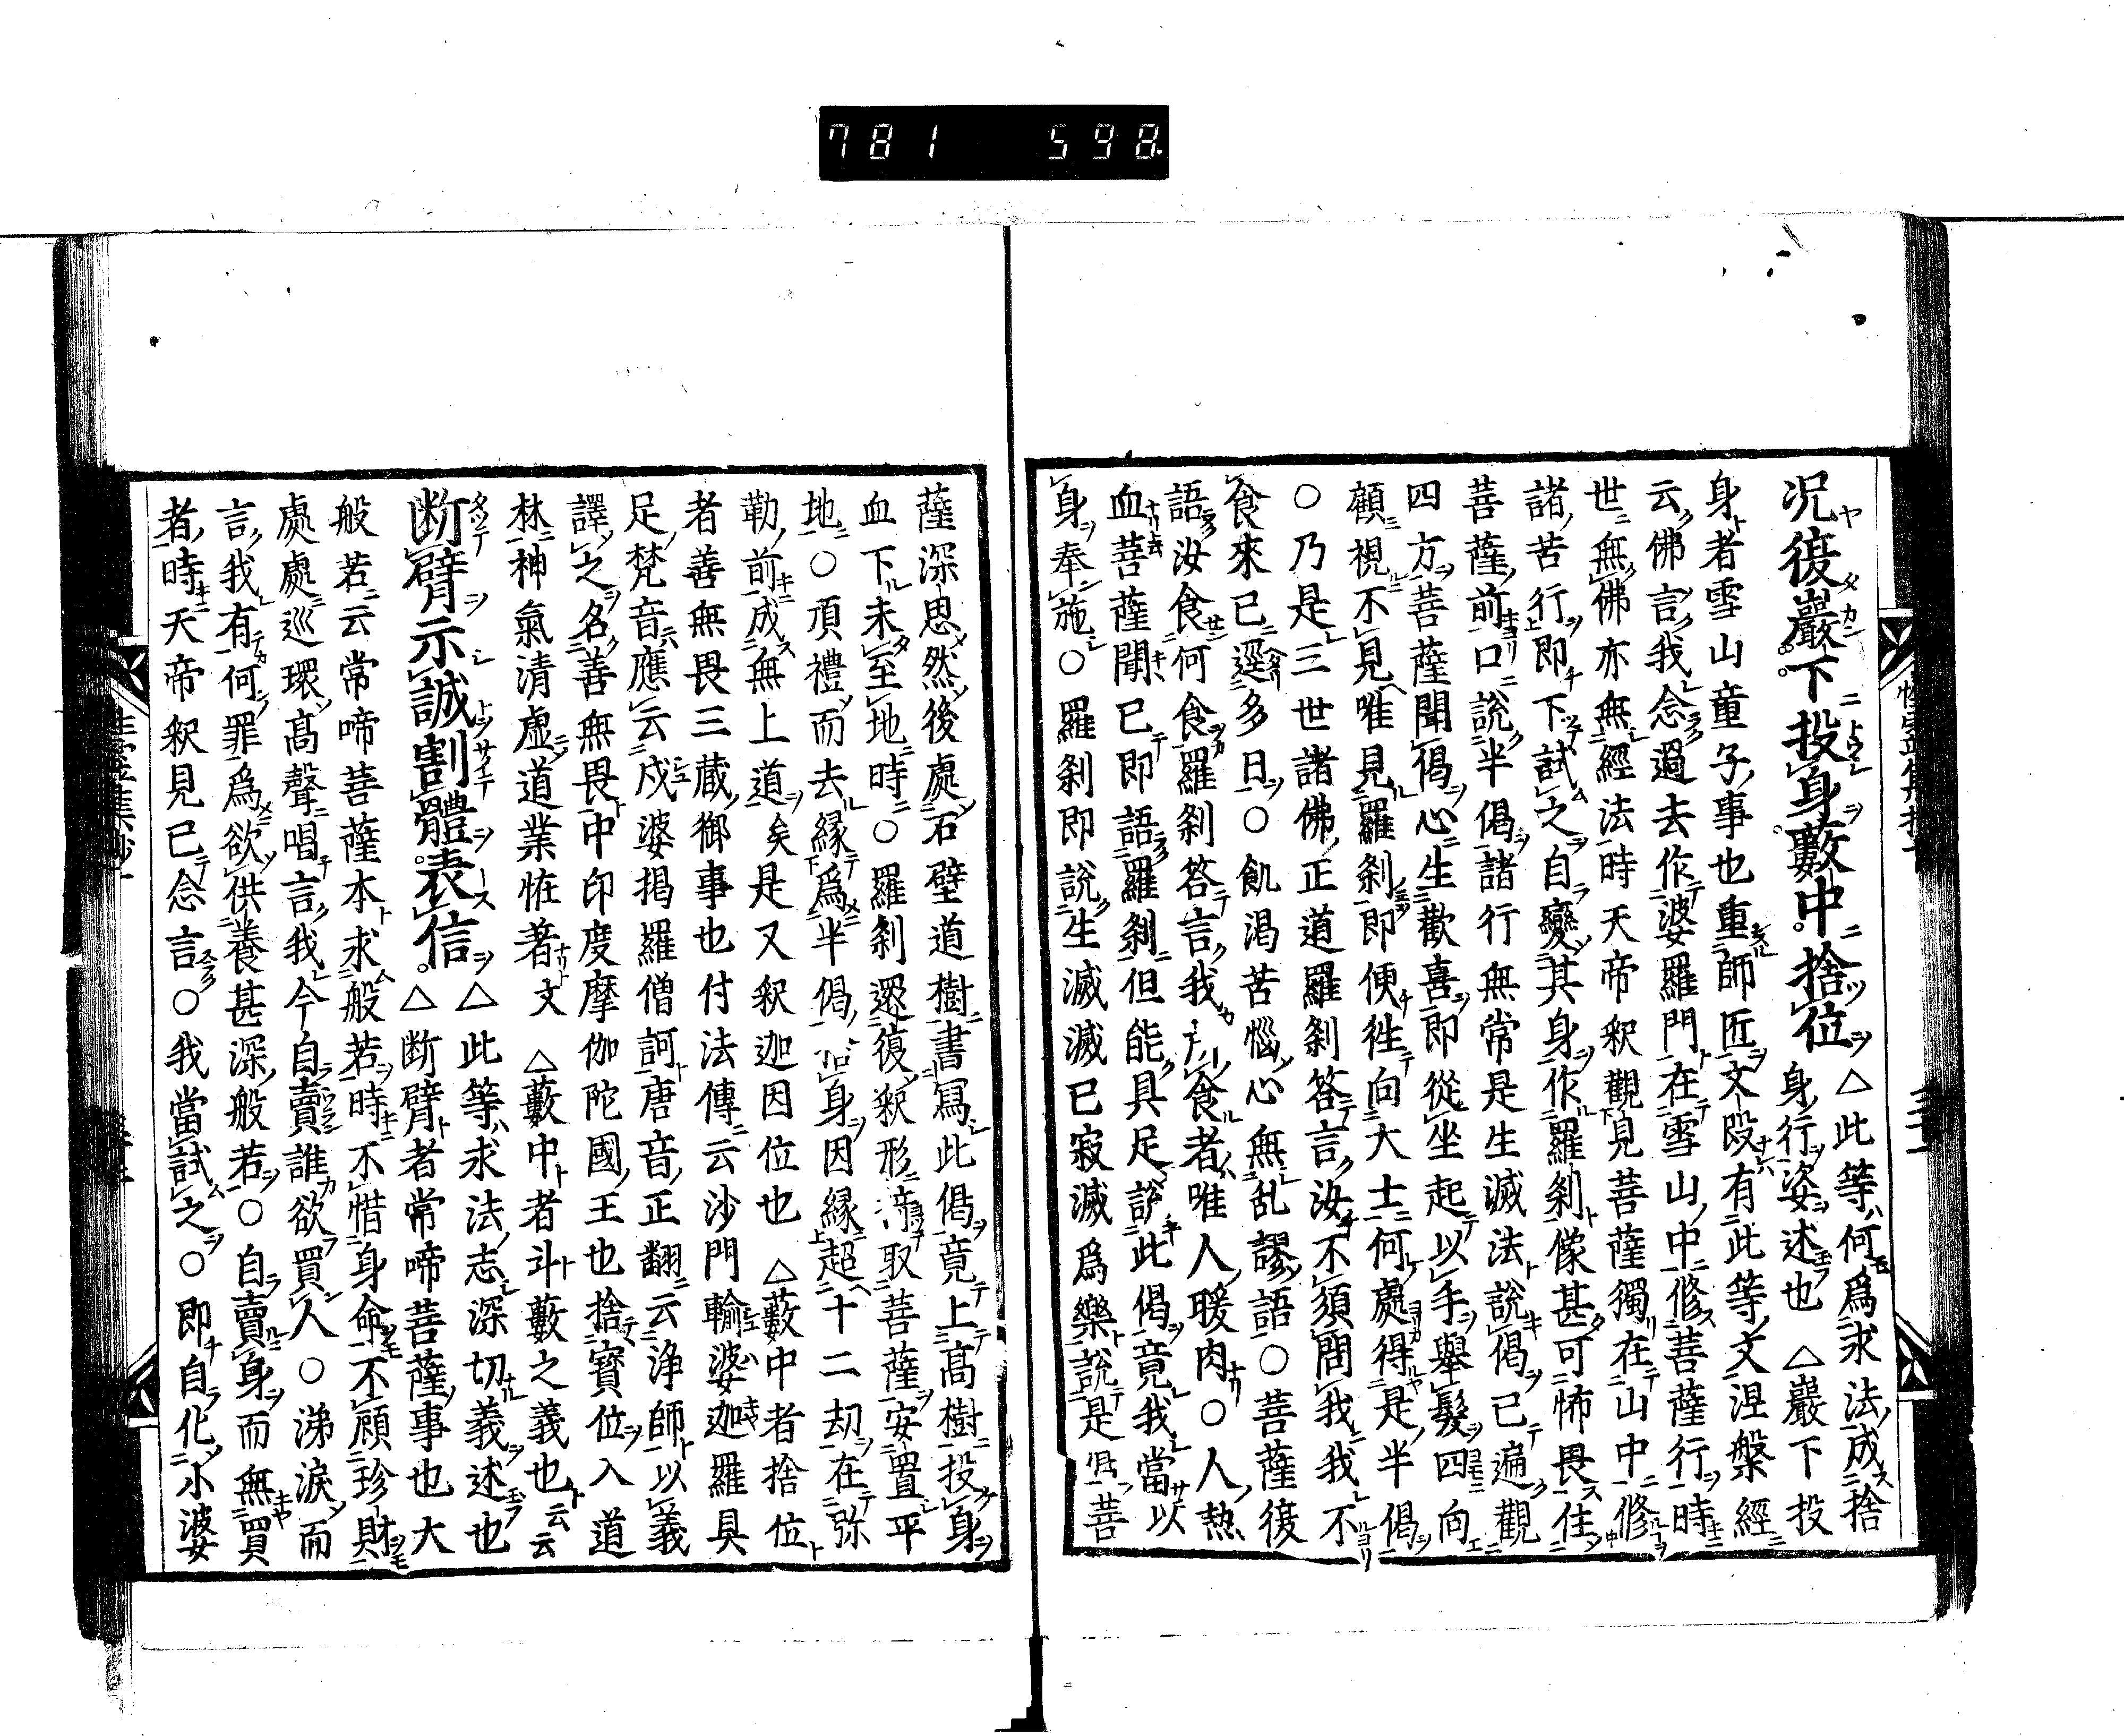 781 598
况復巖下投身藪中捨位△此等何爲求法成捨
身行姿述也△巖下投
身者雪山童子事也重師匠文段有此等文涅槃經
云佛言我念過去作婆羅門在雪山中修菩薩行時
世無佛亦無經法時天帝釈觀見菩薩獨在山中修
諸苦行即下試之自變其身作羅刹像甚可怖畏住
菩薩前口說半偈諸行無常是生滅法說偈已遍觀
四方菩薩聞偈心生歡喜即從坐起以手舉髮四向
顧視不見唯見羅刹即便徃向大士何處得是半偈
○乃是三世諸佛正道羅刹答言汝不須問我我不
食來已逕多日○飢渇苦惱心無乱謬語○菩薩復
語汝食何食羅刹答言我食者唯人暖肉○人熱
血菩薩聞已即語羅刹但能具足說此偈竟我當以
身奉施○羅刹即說生滅滅已寂滅爲樂說是偈菩
薩深思然後處石壁道樹書冩此偈竟上高樹投身
血下未至地時○羅刹還復釈形取菩薩安置平
地○頂禮而去縁爲半偈身因縁超十二刧在弥
勒前成無上道矣是又釈迦因位也△藪中者捨位
者善無畏三蔵御事也付法傳云沙門輸婆迦羅具
足梵音應云戍婆掲羅僧訶唐音正翻云浄師以義
譯之名善無畏中印度摩伽陀國王也捨寶位入道
林神氣清虚道業恠著文△藪中者斗藪之義也云云
断臂示誠割體表信△此等求法志深切義述也
△断臂者常啼菩薩事也大
般若云常啼菩薩本求般若時不惜身命不顧珍財
處處巡環高聲唱言我今自賣誰欲買人○涕淚而
言我有何罪爲欲供養甚深般若○自賣身而無買
者時天帝釈見已念言○我當試之○即自化小婆